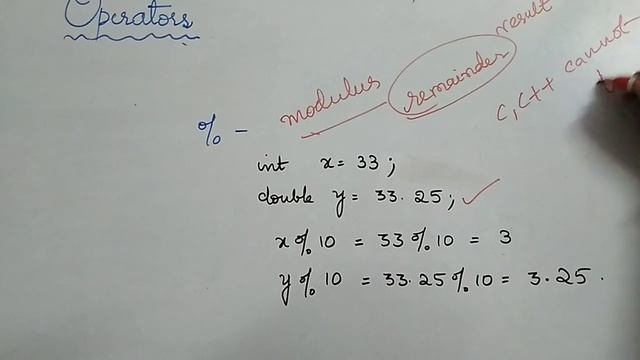 Operators
% - modulus remainder result
C, C++ cannot
int x = 33;
double y = 33.25;
x % 10 = 33 % 10 = 3
y % 10 = 33.25 % 10 = 3.25.